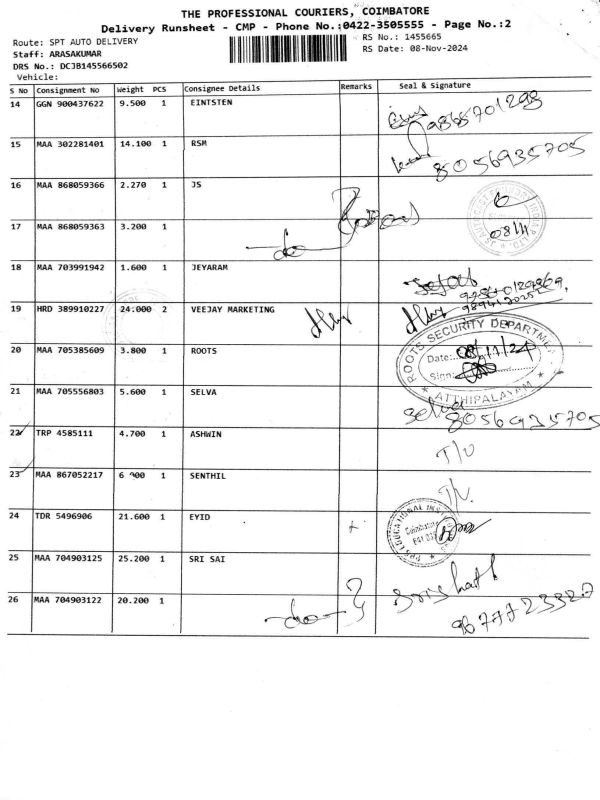 THE PROFESSIONAL COURIERS, COIMBATORE
Delivery Runsheet - CMP - Phone No.:0422-3505555 - Page No.:2
Route: SPT AUTO DELIVERY RS No.: 1455665
Staff: ARASAKUMAR RS Date: 08-Nov-2024
DRS No.: DCJB145566502
Vehicle:
S No Consignment No Weight PCS Consignee Details Remarks Seal & Signature
14 GGN 900437622 9.500 1 EINTSTEN
15 MAA 302281401 14.100 1 RSM 8056935705
16 MAA 868059366 2.270 1 JS
17 MAA 868059363 3.200 1 08/11
18 MAA 703991942 1.600 1 JEYARAM
19 HRD 389910227 24.000 2 VEEJAY MARKETING
20 MAA 705385609 3.800 1 ROOTS
ROOTS SECURITY DEPARTMENT
Date: 08/11/24
Sign:
ATTHIPALAYAM
21 MAA 705556803 5.600 1 SELVA Selva
8056935705
22 TRP 4585111 4.700 1 ASHWIN
23 MAA 867052217 1 SENTHIL
24 TDR 5496906 21.600 1 EYID
Coimbatore
25 MAA 704903125 25.200 1 SRI SAI
26 MAA 704903122 20.200 1